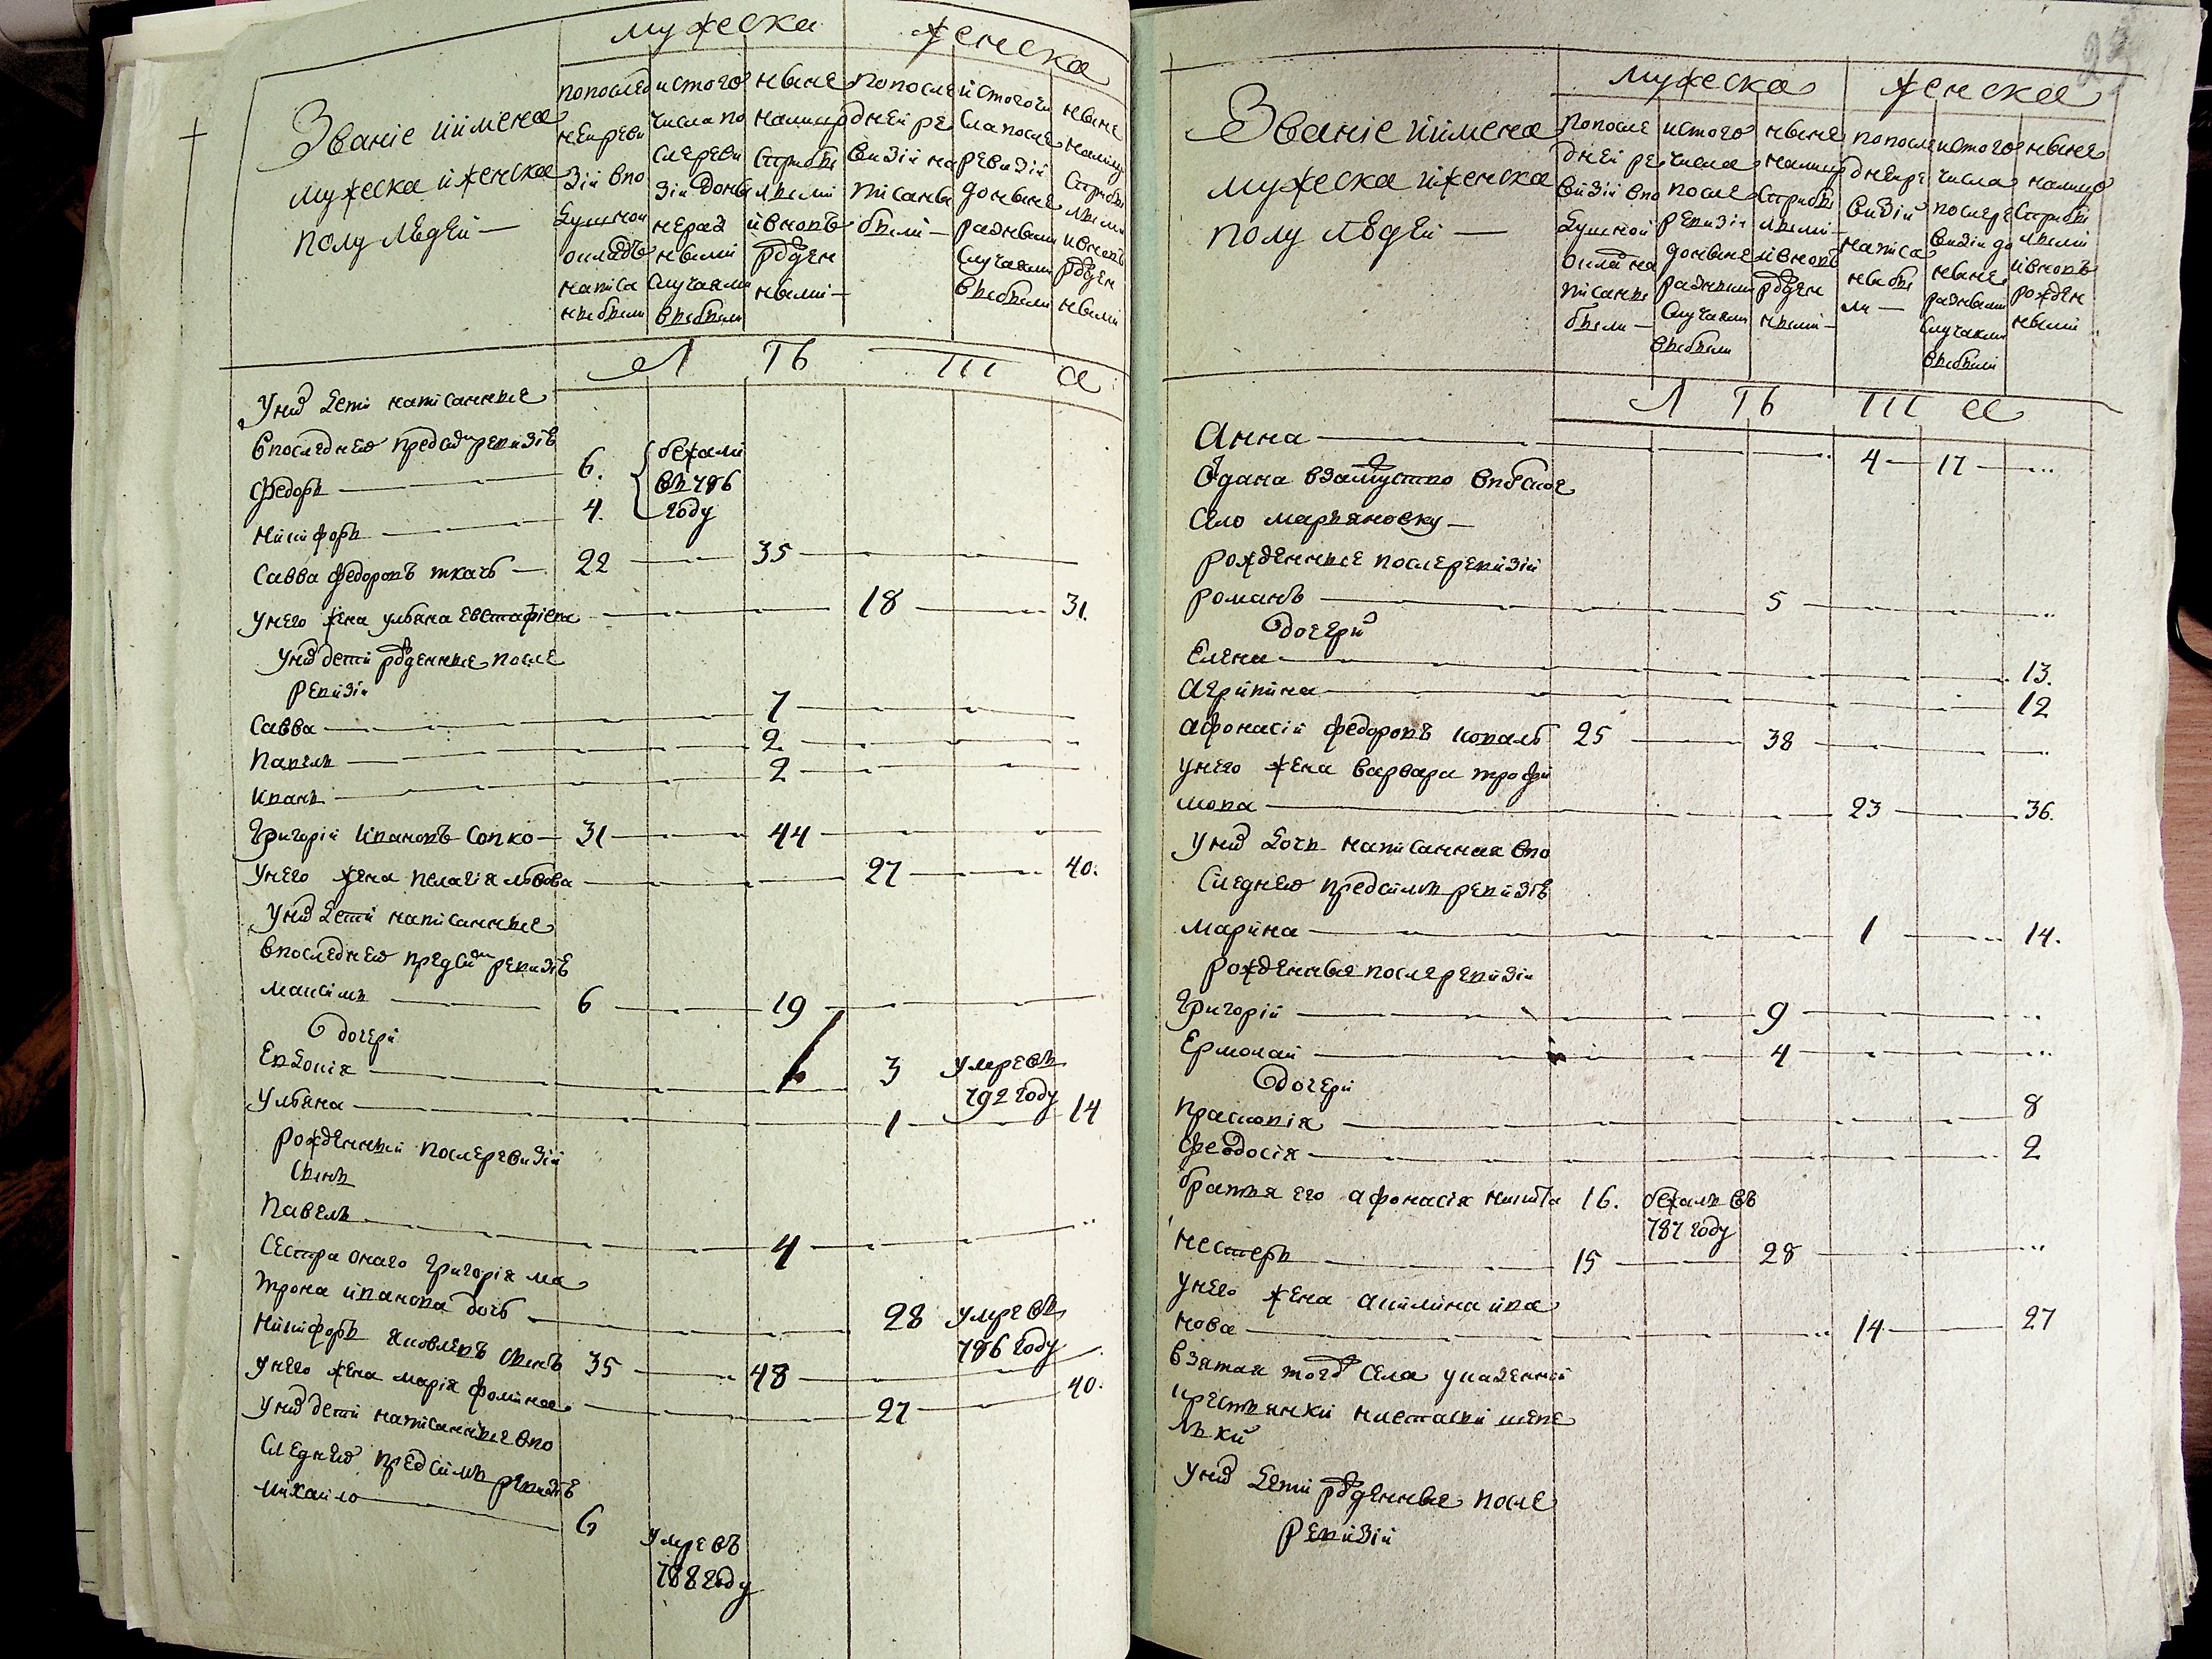 мужеска женска
Званіе иимена
мужеска иженска
полу людей —
попослед
неиреви
зіи впо
душной
окладъ
написа
ны были
истого
числа по
слереви
зіи доны
нераз
ными
случаями
выбыли
ныне
налицо
сприбы
лыми
ивновъ
рожден
ными —
попосле
дней ре
визіи на
писаны
были —
истогочи
сла после
ревизіи
доныне
разными
случаями
выбыли
ныне
налицо
сприбы
лыми
ивновъ
рожден
ными
Л ѣ т а
унихъ дети написанные
впоследнею предсимъ ревизіе
федоръ — 6. бежали
въ 786
году
никифоръ — 4.
Савва федоровъ ткачь — 22 — 35 —
унего жена ульяна евстафіева — 18 — 31.
унихъ дети рожденные после
ревизіи
Савва — 7 —
Павелъ — 2 —
иванъ — 2 —
Григорій ивановъ Сопко — 31 — 44 —
унего жена пелагія львова — 27 — 40.
унихъ дети написанные
впоследнею предсимъ ревизіе
максимъ — 6 — 19 —
дочери
Евдокія — 3 умре въ
792 году
Ульяна — 1 — 14
рожденный послеревизіи
сынъ
Павелъ — 4 —
Сестра онаго Григорія ма
трона иванова дочь — 28 умре въ
786 году
Никифоръ яковлевъ сынъ 35 — 48 —
унего жена марія фомина — 27 — 40.
унихъ дети написанные впо
следнею предсимъ ревизіе
михайло — 6 умре въ
788 году
мужеска женска
Званіе иимена
мужеска иженска
полу людей —
попосле
дней ре
визіи впо
душной
окла на
писаны
были —
истого
числа
после
ревизіи
доныне
разными
случаями
выбыли
ныне
налицо
сприбы
лыми —
ивновъ
рожден
ными —
попосле
днеире
визіи
написа
ны бы
ли —
истого
числа
послере
визіи до
ныне
разными
случаями
выбыли
ныне
налицо
сприбы
лыми
ивновъ
рожден
ными
Л ѣ т а
Анна — 4 — 17 —
Село марьяновку —
рожденные послеревизіи
романъ — 5 —
дочери
Елена — 13.
Агрипина — 12
афонасій федоровъ коваль 25 — 38 —
унего жена варвара трофи
мова — 23 — 36.
унихъ дочь написанная впо
следнею предсимъ ревизіе
марина — 1 — 14.
рожденные послеревизіи
Григорій — 9 —
Ермолай — 4 —
дочери
прасковія — 8
Феодосія — 2
братья его афонасія никита 16. бежалъ въ
787 году
нестеръ — 15 — 28 —
унего жена акилина ива
нова — 14 — 27
взятая тогожъ села указенной
крестьянки настасіи шепе
льки
унихъ дети рожденные после
ревизіи